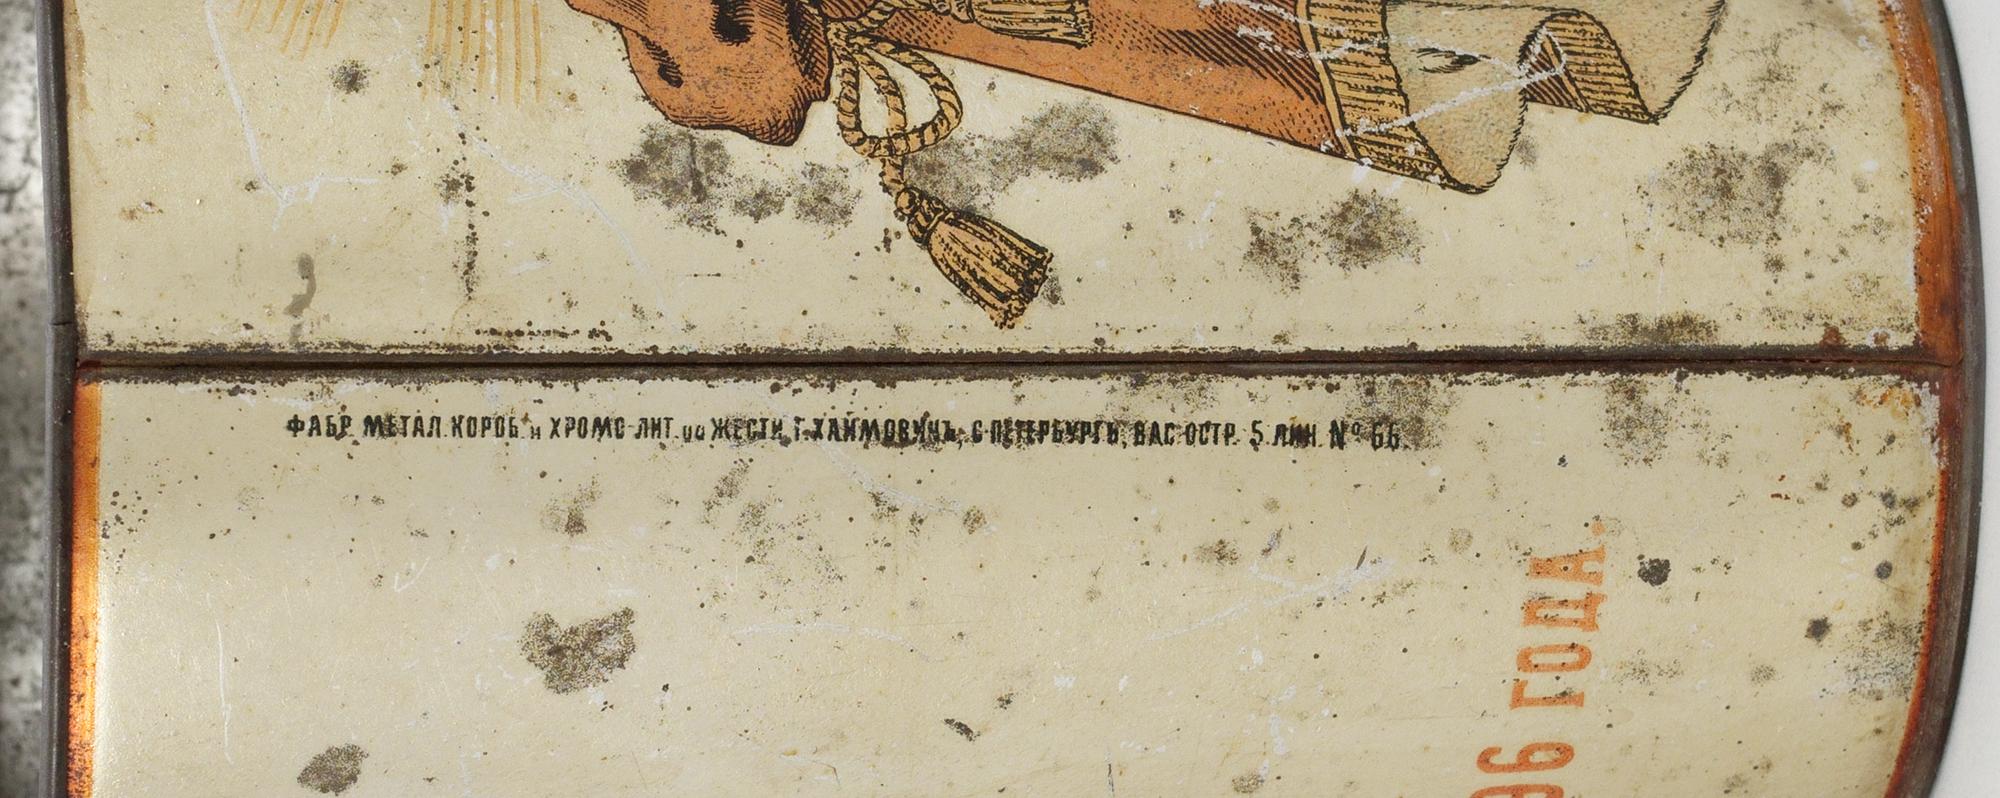 ФАБР. МЕТАЛ. КОРОБ. и ХРОМО-ЛИТ. на ЖЕСТИ, Г. ХАЙМОВИЧЪ, С-ПЕТЕРБУРГЪ, ВАС. ОСТР. 5 ЛИН. № 66.
96 ГОДА.